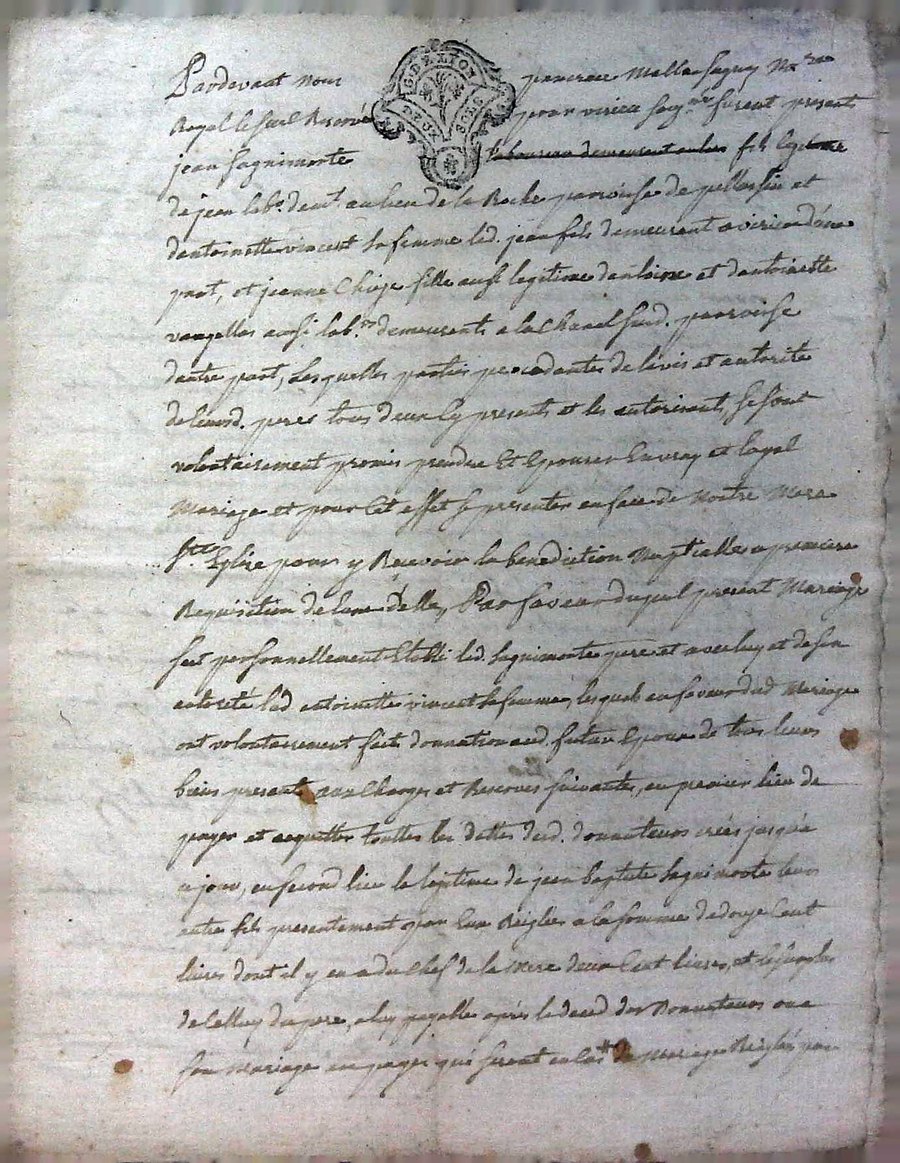 Pardevant nous
G. DE LYON
DEUX SOLS
Royal le seul Reservé pour virieu soussigné furent present
jean sagnimorte laboureur demeurant au lieu fils legitime
de jean lab.r dem.t au lieu de la Roche parroisse de pellussin et
d'antoinette vincent sa femme led. jean fils demeurant a virieu d'une
part, et jeanne Chize fille aussi legitime d'antoine et d'antoinette
vangelles aussi lab.rs demeurants a la Chanal susd. parroisse
d'autre part, Lesquelles parties procedantes de l'avis et autorité
de leursd. peres tous deux Cy presents et les autorisant, se sont
volontairement promis prendre Et Epouser En vray et loyal
Mariage et pour Cet effet se presenter en face de Notre Mere
S.te Eglise pour y Recevoir la benediction Nuptialle a premiere
Requisition de l'une d'elles, En faveur duquel present Mariage
fut personnellement Etabli led. sagnimorte pere et avec luy et de son
autorité lad. antoinette vincent sa femme, lesquels en faveur dud. Mariage
ont volontairement fait donnation aud. futur Epoux de tous leurs
biens presents aux Charges et Reserves suivantes, en premier lieu de
payer et acquitter touttes les dettes desd. donnateurs créés jusqu'a
ce jour, en second lieu la legitime de jean baptiste sagnimorte leur
autre fils presentement par Eux Reiglée a la somme de douze Cent
livres dont il y en a du Chef de la mere deux Cent livres, et le surplus
de Celluy du pere, a luy payable après le deced des Donnateurs ou a
son mariage en payes qui seront en cas de Mariage Reiglés par